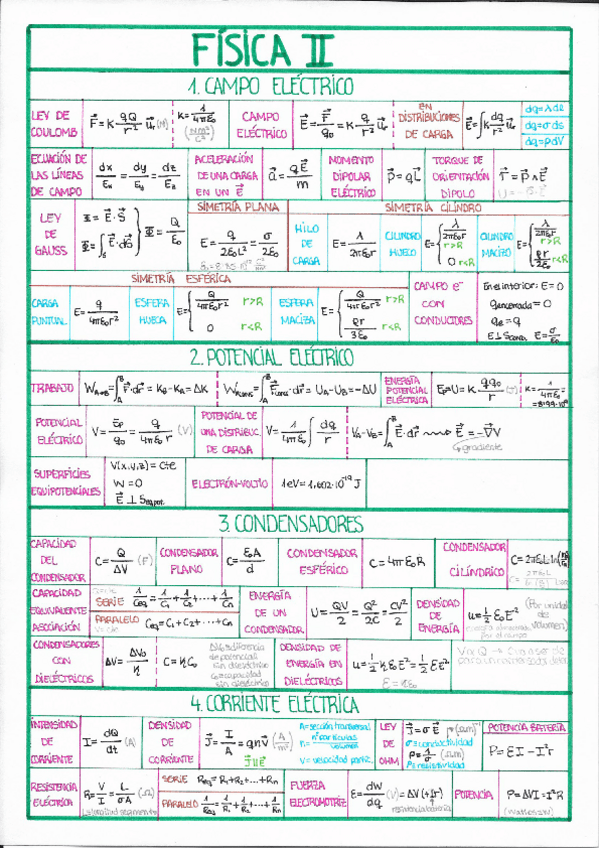 FÍSICA II
1. CAMPO ELÉCTRICO
LEY DE COULOMB F⃗ = K·qQ/r² u⃗r (N) K = 1/4πε₀ (Nm²/C²) CAMPO ELÉCTRICO E⃗ = F⃗/q₀ = K·q/r² u⃗r EN DISTRIBUCIONES DE CARGA E⃗ = ∫K dq/r² u⃗r dq=λdl dq=σds dq=ρdV
ECUACIÓN DE LAS LÍNEAS DE CAMPO dx/Ex = dy/Ey = dz/Ez ACELERACIÓN DE UNA CARGA EN UN E⃗ a⃗ = qE⃗/m MOMENTO DIPOLAR ELÉCTRICO p⃗ = qL⃗ TORQUE DE ORIENTACIÓN DIPOLO τ⃗ = p⃗ ∧ E⃗
LEY DE GAUSS Φ = E⃗·S⃗ Φ = ∫s E⃗·dS⃗ Φ = Q/ε₀
SIMETRÍA PLANA E = q/2ε₀L² = σ/2ε₀
SIMETRÍA CILINDRO
HILO DE CARGA E = λ/2πε₀r CILINDRO HUECO E = { λ/2πε₀r r>R 0 r<R CILINDRO MACIZO E = { λ/2πε₀r r>R ρr/2ε₀ r<R
SIMETRÍA ESFÉRICA
CARGA PUNTUAL E = q/4πε₀r² ESFERA HUECA E = { Q/4πε₀r² r>R 0 r<R ESFERA MACIZA E = { Q/4πε₀r² r>R ρr/3ε₀ r<R
CAMPO e⁻ CON CONDUCTORES En el interior: E = 0 qencerrada = 0 E = σ/ε₀
2. POTENCIAL ELÉCTRICO
TRABAJO WA→B = ∫AB F⃗·dr⃗ = KB-KA = ΔK = UA-UB = -ΔU ENERGÍA POTENCIAL ELÉCTRICA Ep=U= K·qq₀/r (J) K = 1/4πε₀ =
POTENCIAL ELÉCTRICO V = Ep/q₀ = q/4πε₀r (V) POTENCIAL DE UNA DISTRIBUC. DE CARGA V = 1/4πε₀ ∫ dq/r VA-VB = ∫AB E⃗·dr⃗ E⃗ = -∇⃗V gradiente
SUPERFICIES EQUIPOTENCIALES V(x,y,z) = Cte W = 0 ELECTRÓN-VOLTIO 1eV = 1,602·10⁻¹⁹ J
3. CONDENSADORES
CAPACIDAD DEL CONDENSADOR C = Q/ΔV (F) CONDENSADOR PLANO C = ε₀A/d CONDENSADOR ESFÉRICO C = 4πε₀R CONDENSADOR CILÍNDRICO
CAPACIDAD EQUIVALENTE ASOCIACIÓN SERIE 1/Ceq = 1/C₁ + 1/C₂ + ··· + 1/Cn PARALELO Ceq = C₁+C₂+···+Cn ENERGÍA DE UN CONDENSADOR U = QV/2 = Q²/2C = CV²/2 DENSIDAD DE ENERGÍA u = 1/2 ε₀E² (Por unidad de volumen)
CONDENSADORES CON DIELÉCTRICOS ΔV = ΔV₀/κ C = κC₀ ΔV₀=diferencia de potencial sin dieléctrico C₀=capacidad sin dieléctrico DENSIDAD DE ENERGÍA EN DIELÉCTRICOS u = 1/2 κε₀E² = 1/2 εE²
4. CORRIENTE ELÉCTRICA
INTENSIDAD DE CORRIENTE I = dQ/dt (A) DENSIDAD DE CORRIENTE J⃗ = I/A = qnv⃗ (A/m²) A=sección transversal n = nº partículas/volumen LEY DE OHM J⃗ = σE⃗ σ=conductividad ρ = 1/σ (Ω.m) ρ=resistividad POTENCIA BATERÍA P = εI - I²r
RESISTENCIA ELÉCTRICA R = V/I = L/σA (Ω) SERIE Req = R₁+R₂+···+Rn PARALELO 1/Req = 1/R₁ + 1/R₂ + ··· + 1/Rn FUERZA ELECTROMOTRIZ ε = dW/dq (V) = ΔV (+Ir) POTENCIA P = ΔVI = I²R